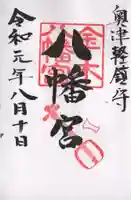 奥津軽嶺守
八幡宮
令和元年八月十日
金木
八幡宮